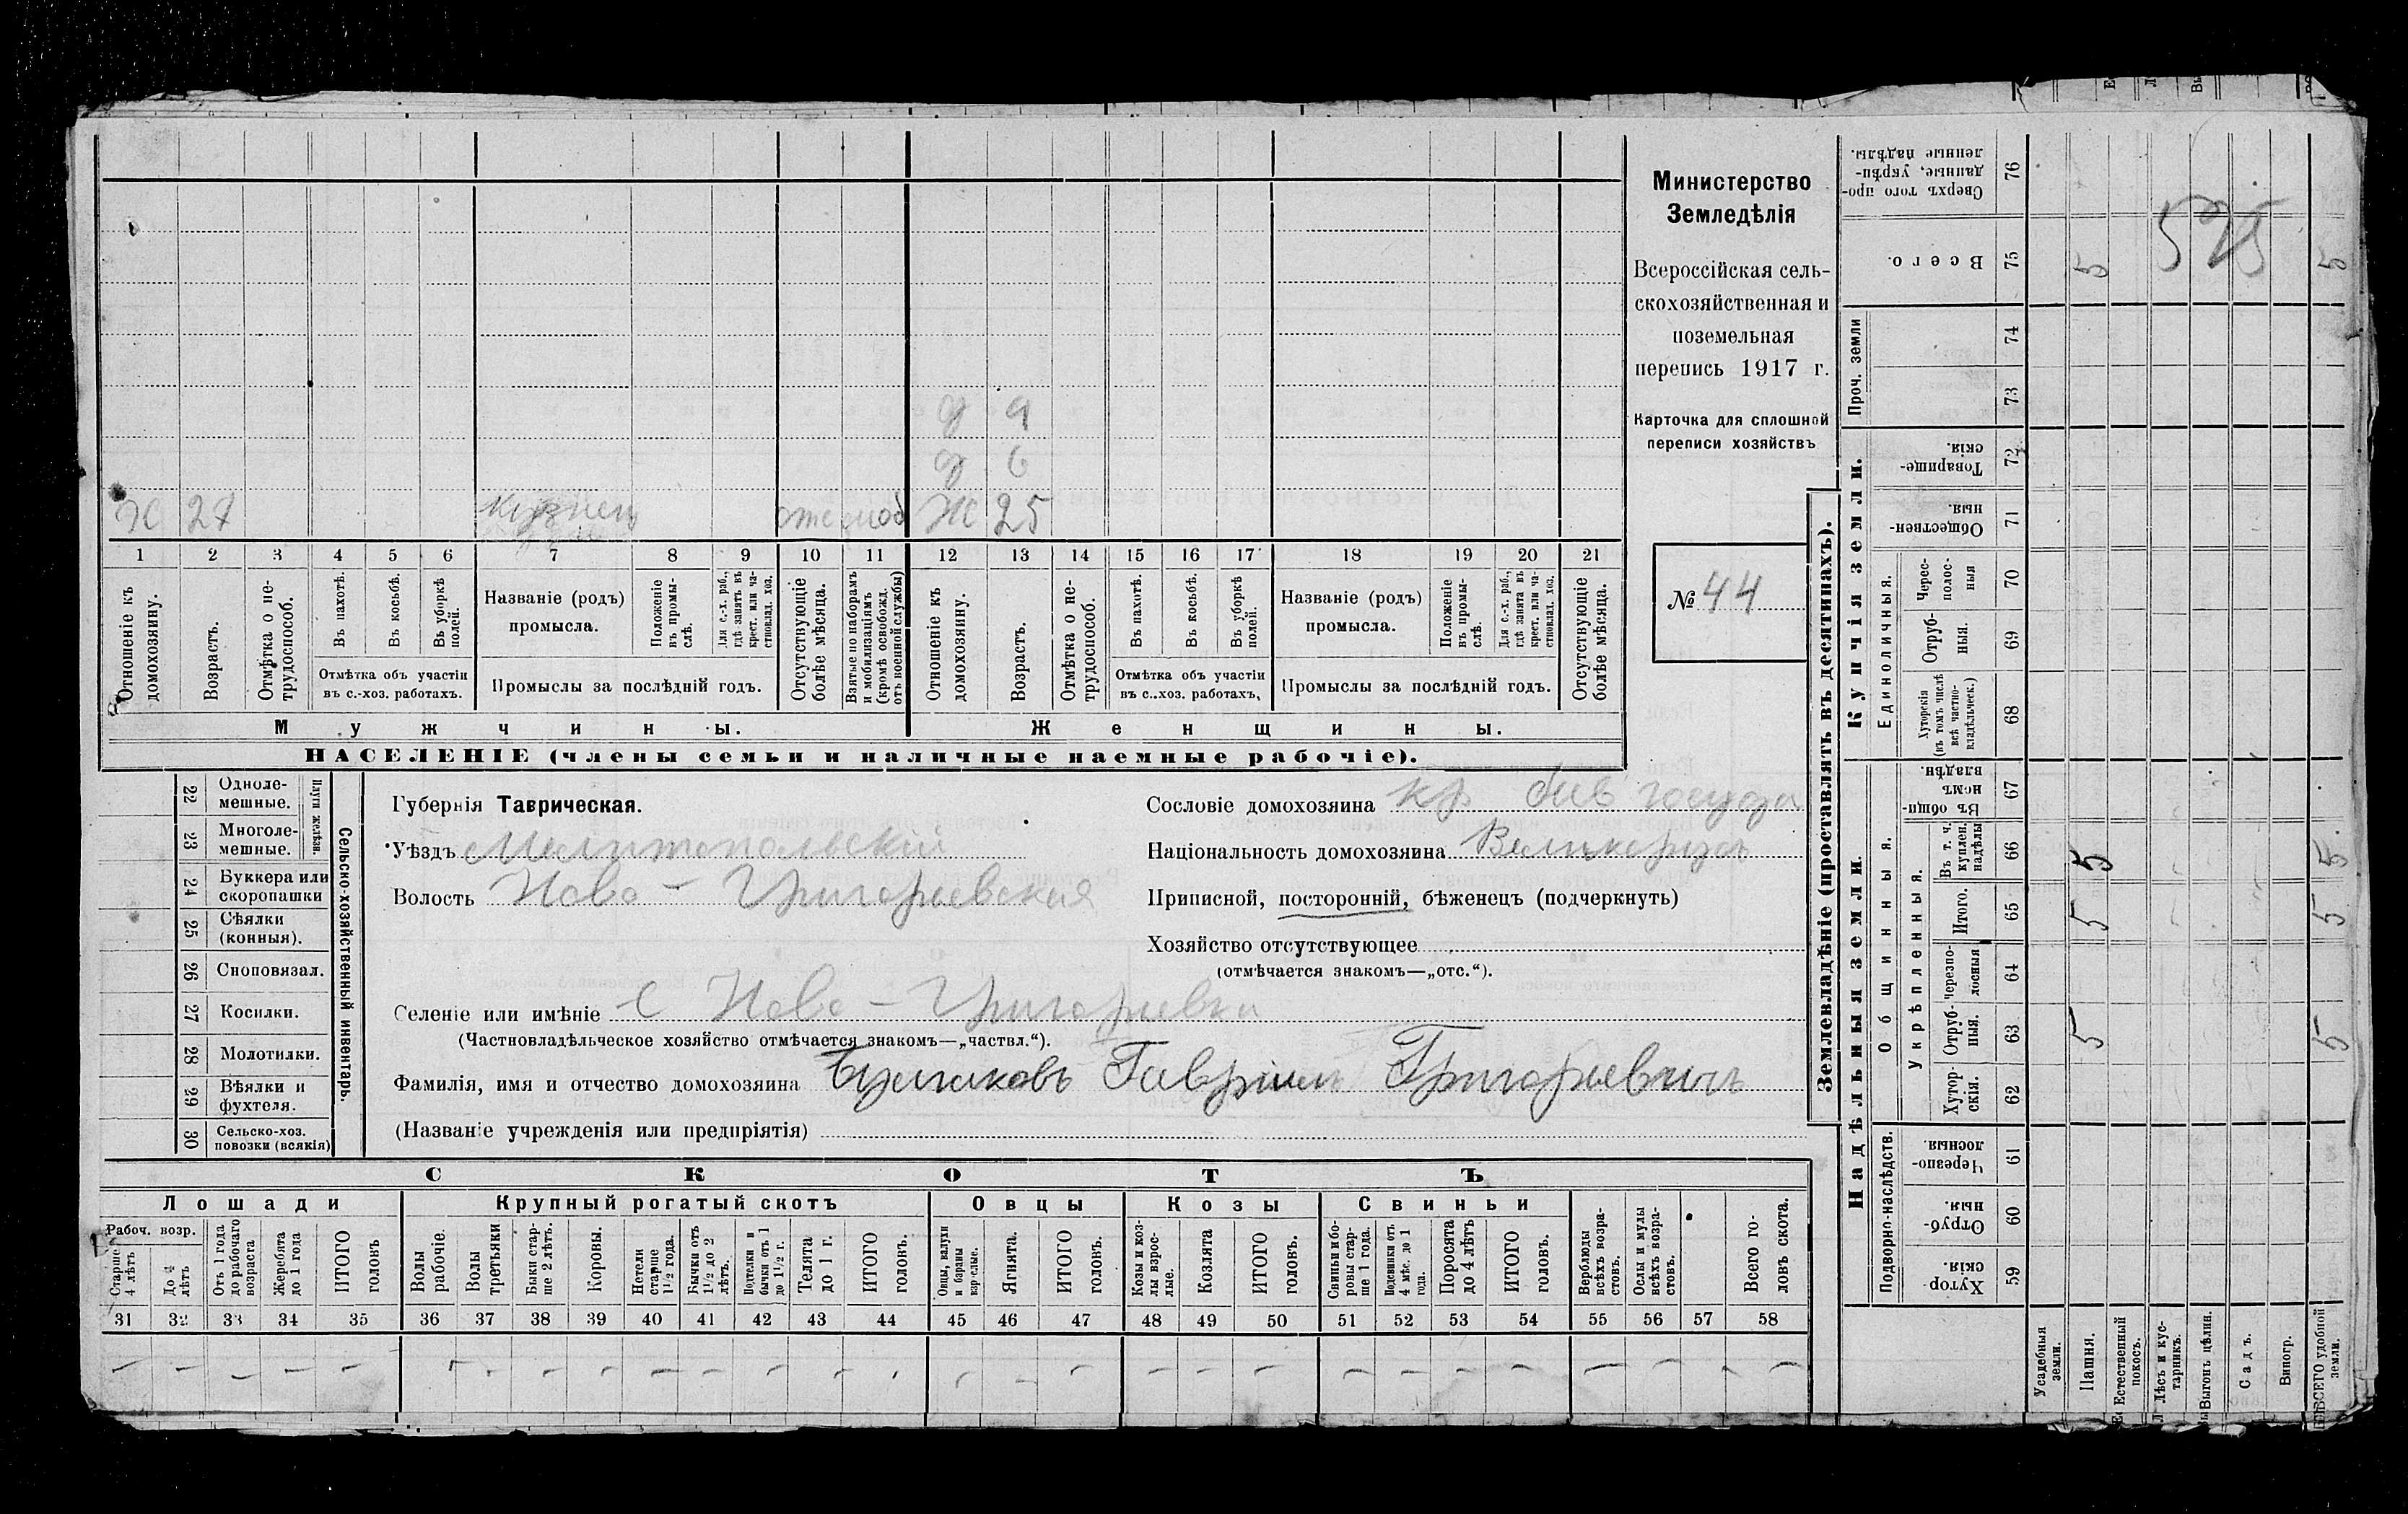 Министерство
Земледѣлія
Всероссійская сель-
скохозяйственная и
поземельная
перепись 1917 г.
Карточка для сплошной
переписи хозяйствъ
№ 44
д 9
д 6
Х 27 кузнец отс моб Ж 25
1 2 3 4 5 6 7 8 9 10 11 12 13 14 15 16 17 18 19 20 21
Отношеніе къ домохозяину.
Возрастъ.
Отмѣтка о не-трудоспособ.
Въ пахотѣ.
Въ косьбѣ.
Въ уборкѣ полей.
Отмѣтка объ участіи въ с.-хоз. работахъ.
Названіе (родъ) промысла.
Положеніе въ промы-слѣ.
Для с.-х. раб., гдѣ занятъ въ крест. или ча-стновлад. хоз.
Промыслы за послѣдній годъ.
Отсутствующіе болѣе мѣсяца.
Взятые по наборамъ и мобилизаціямъ (кромѣ освобожд. отъ военной службы)
Отношеніе къ домохозяину.
Возрастъ.
Отмѣтка о не-трудоспособ.
Въ пахотѣ.
Въ косьбѣ.
Въ уборкѣ полей.
Отмѣтка объ участіи въ с.-хоз. работахъ,
Названіе (родъ) промысла.
Положеніе въ промы-слѣ.
Для с.-х. раб., гдѣ занята въ крест. или ча-стновлад. хоз.
Промыслы за послѣдній годъ.
Отсутствующіе болѣе мѣсяца.
Мужчины. Женщины.
НАСЕЛЕНІЕ (члены семьи и наличные наемные рабочіе).
Сельско-хозяйственный инвентарь.
Плуги желѣзн.
22 Одноле-мешные.
23 Многоле-мешные.
24 Буккера или скоропашки
25 Сѣялки (конныя).
26 Сноповязал.
27 Косилки.
28 Молотилки.
29 Вѣялки и фухтеля.
30 Сельско-хоз. повозки (всякія)
Губернія Таврическая.
Уѣздъ Мелитопольскій
Волость Ново-Григорьевская
Сословіе домохозяина кр быв госуда
Національность домохозяина Великорусъ
Приписной, посторонній, бѣженецъ (подчеркнуть)
Хозяйство отсутствующее
(отмѣчается знакомъ—„отс.“).
Селеніе или имѣніе с Ново-Григорьевка
(Частновладѣльческое хозяйство отмѣчается знакомъ—„частвл.“).
Фамилія, имя и отчество домохозяина Гавріилъ Григорьевичъ
(Названіе учрежденія или предпріятія)
СКОТЪ
Лошади Крупный рогатый скотъ Овцы Козы Свиньи
Рабоч. возр.
Старше 4 лѣтъ
До 4 лѣтъ
Отъ 1 года до рабочаго возраста
Жеребята до 1 года
ИТОГО головъ
Волы рабочіе.
Волы третьяки
Быки стар-ше 2 лѣтъ.
Коровы.
Нетели старше 1½ года.
Бычки отъ 1½ до 2 лѣтъ.
Подтелки и бычки отъ 1 до 1½ г.
Телята до 1 г.
ИТОГО головъ.
Овцы, валухи и бараны взрослые.
Ягнята.
ИТОГО головъ.
Козы и коз-лы взрос-лые.
Козлята
ИТОГО головъ.
Свиньи и бо-ровы стар-ше 1 года.
Подсвинки отъ 4 мѣс. до 1 года.
Поросята до 4 лѣтъ
ИТОГО головъ.
Верблюды всѣхъ возра-стовъ.
Ослы и мулы всѣхъ возра-стовъ.
Всего го-ловъ скота.
31 32 33 34 35 36 37 38 39 40 41 42 43 44 45 46 47 48 49 50 51 52 53 54 55 56 57 58
Землевладѣніе (проставлять въ десятинахъ).
Надѣльныя земли.
Подворно-наслѣдств.
Хутор-скія. 59
Отруб-ныя. 60
Черезпо-лосныя. 61
Общинныя.
Укрѣпленныя.
Хутор-скія. 62
Отруб-ныя. 63
Черезпо-лосныя 64
Итого. 65
Въ т. ч. куплен. надѣлы 66
Въ общин-номъ владѣн. 67
Купчія земли.
Единоличныя.
Хуторскія (въ томъ числѣ всѣ частно-владѣльческ.) 68
Отруб-ныя. 69
Черес-полос-ныя 70
Обществен-ныя. 71
Товарище-скія. 72
Проч. земли
73
74
Всего. 75
Сверхъ того про-данные, укрѣп-ленные надѣлы. 76
Усадебныя земли.
Пашня. 5 5 5 5
Естественный покосъ.
Лѣсъ и кус-тарникъ.
Выгонъ цѣлин.
Садъ.
Виногр.
ВСЕГО удобной земли. 5 5 5 5